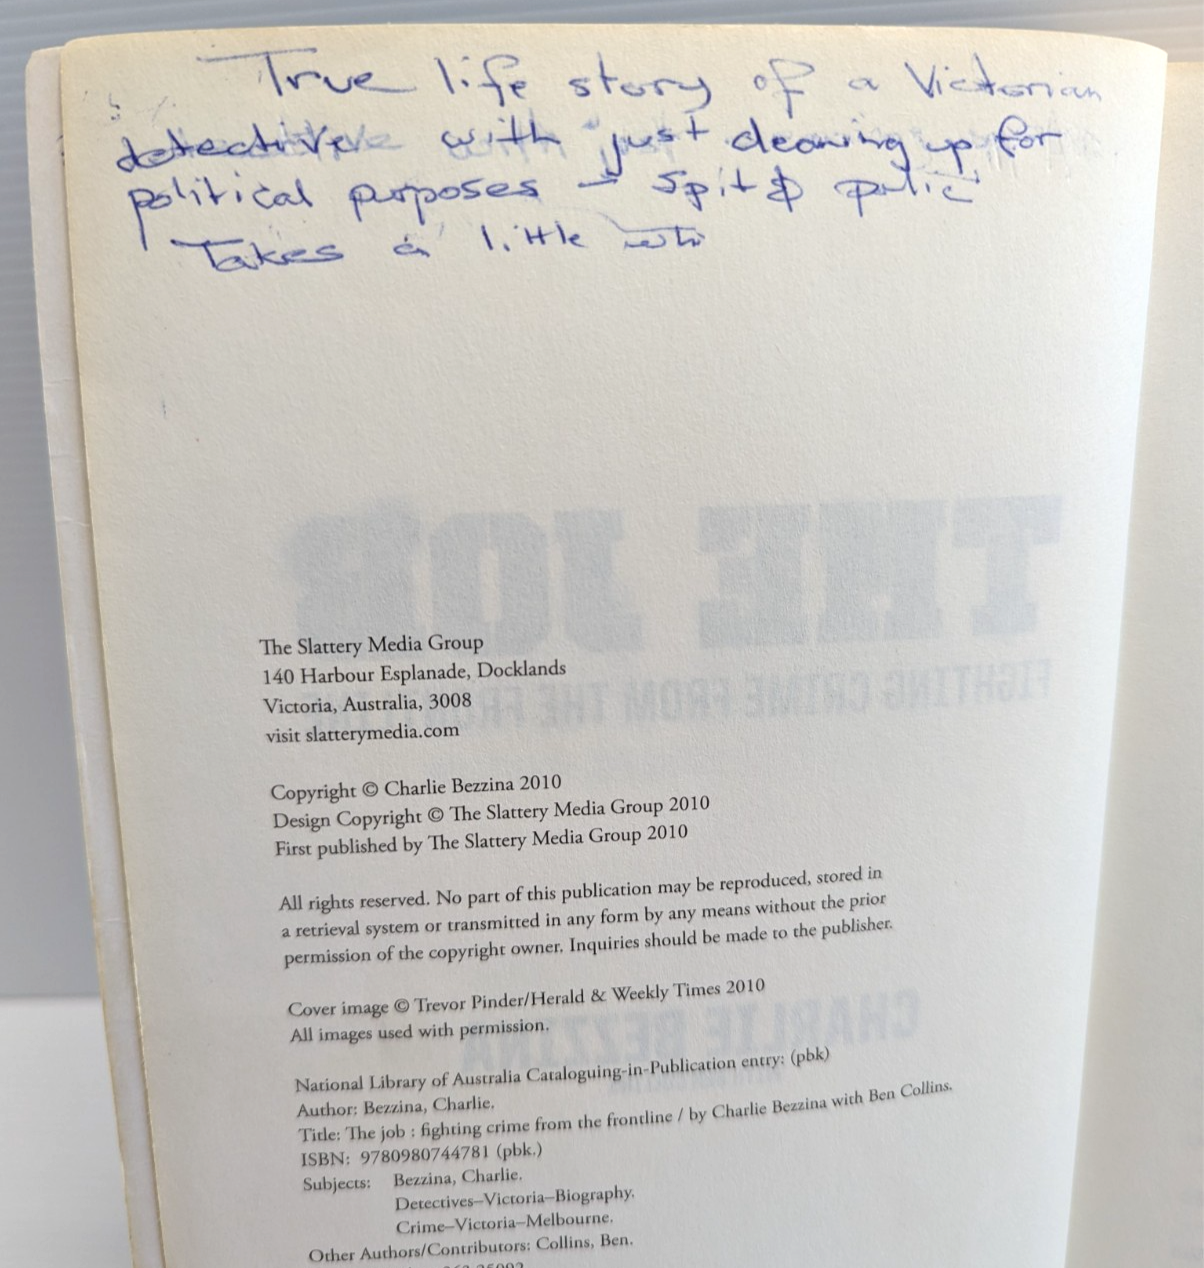 True life story of a Victorian
detective with just cleaning up for
political purposes - Spit &
Takes a little
The Slattery Media Group
140 Harbour Esplanade, Docklands
Victoria, Australia, 3008
visit slatterymedia.com
Copyright © Charlie Bezzina 2010
Design Copyright © The Slattery Media Group 2010
First published by The Slattery Media Group 2010
All rights reserved. No part of this publication may be reproduced, stored in
a retrieval system or transmitted in any form by any means without the prior
permission of the copyright owner. Inquiries should be made to the publisher.
Cover image © Trevor Pinder/Herald & Weekly Times 2010
All images used with permission.
National Library of Australia Cataloguing-in-Publication entry: (pbk)
Author: Bezzina, Charlie.
Title: The job : fighting crime from the frontline / by Charlie Bezzina with Ben Collins.
ISBN: 9780980744781 (pbk.)
Subjects: Bezzina, Charlie.
Detectives–Victoria–Biography.
Crime–Victoria–Melbourne.
Other Authors/Contributors: Collins, Ben.
THE JOB
FIGHTING CRIME FROM THE
CHARLIE BEZZINA